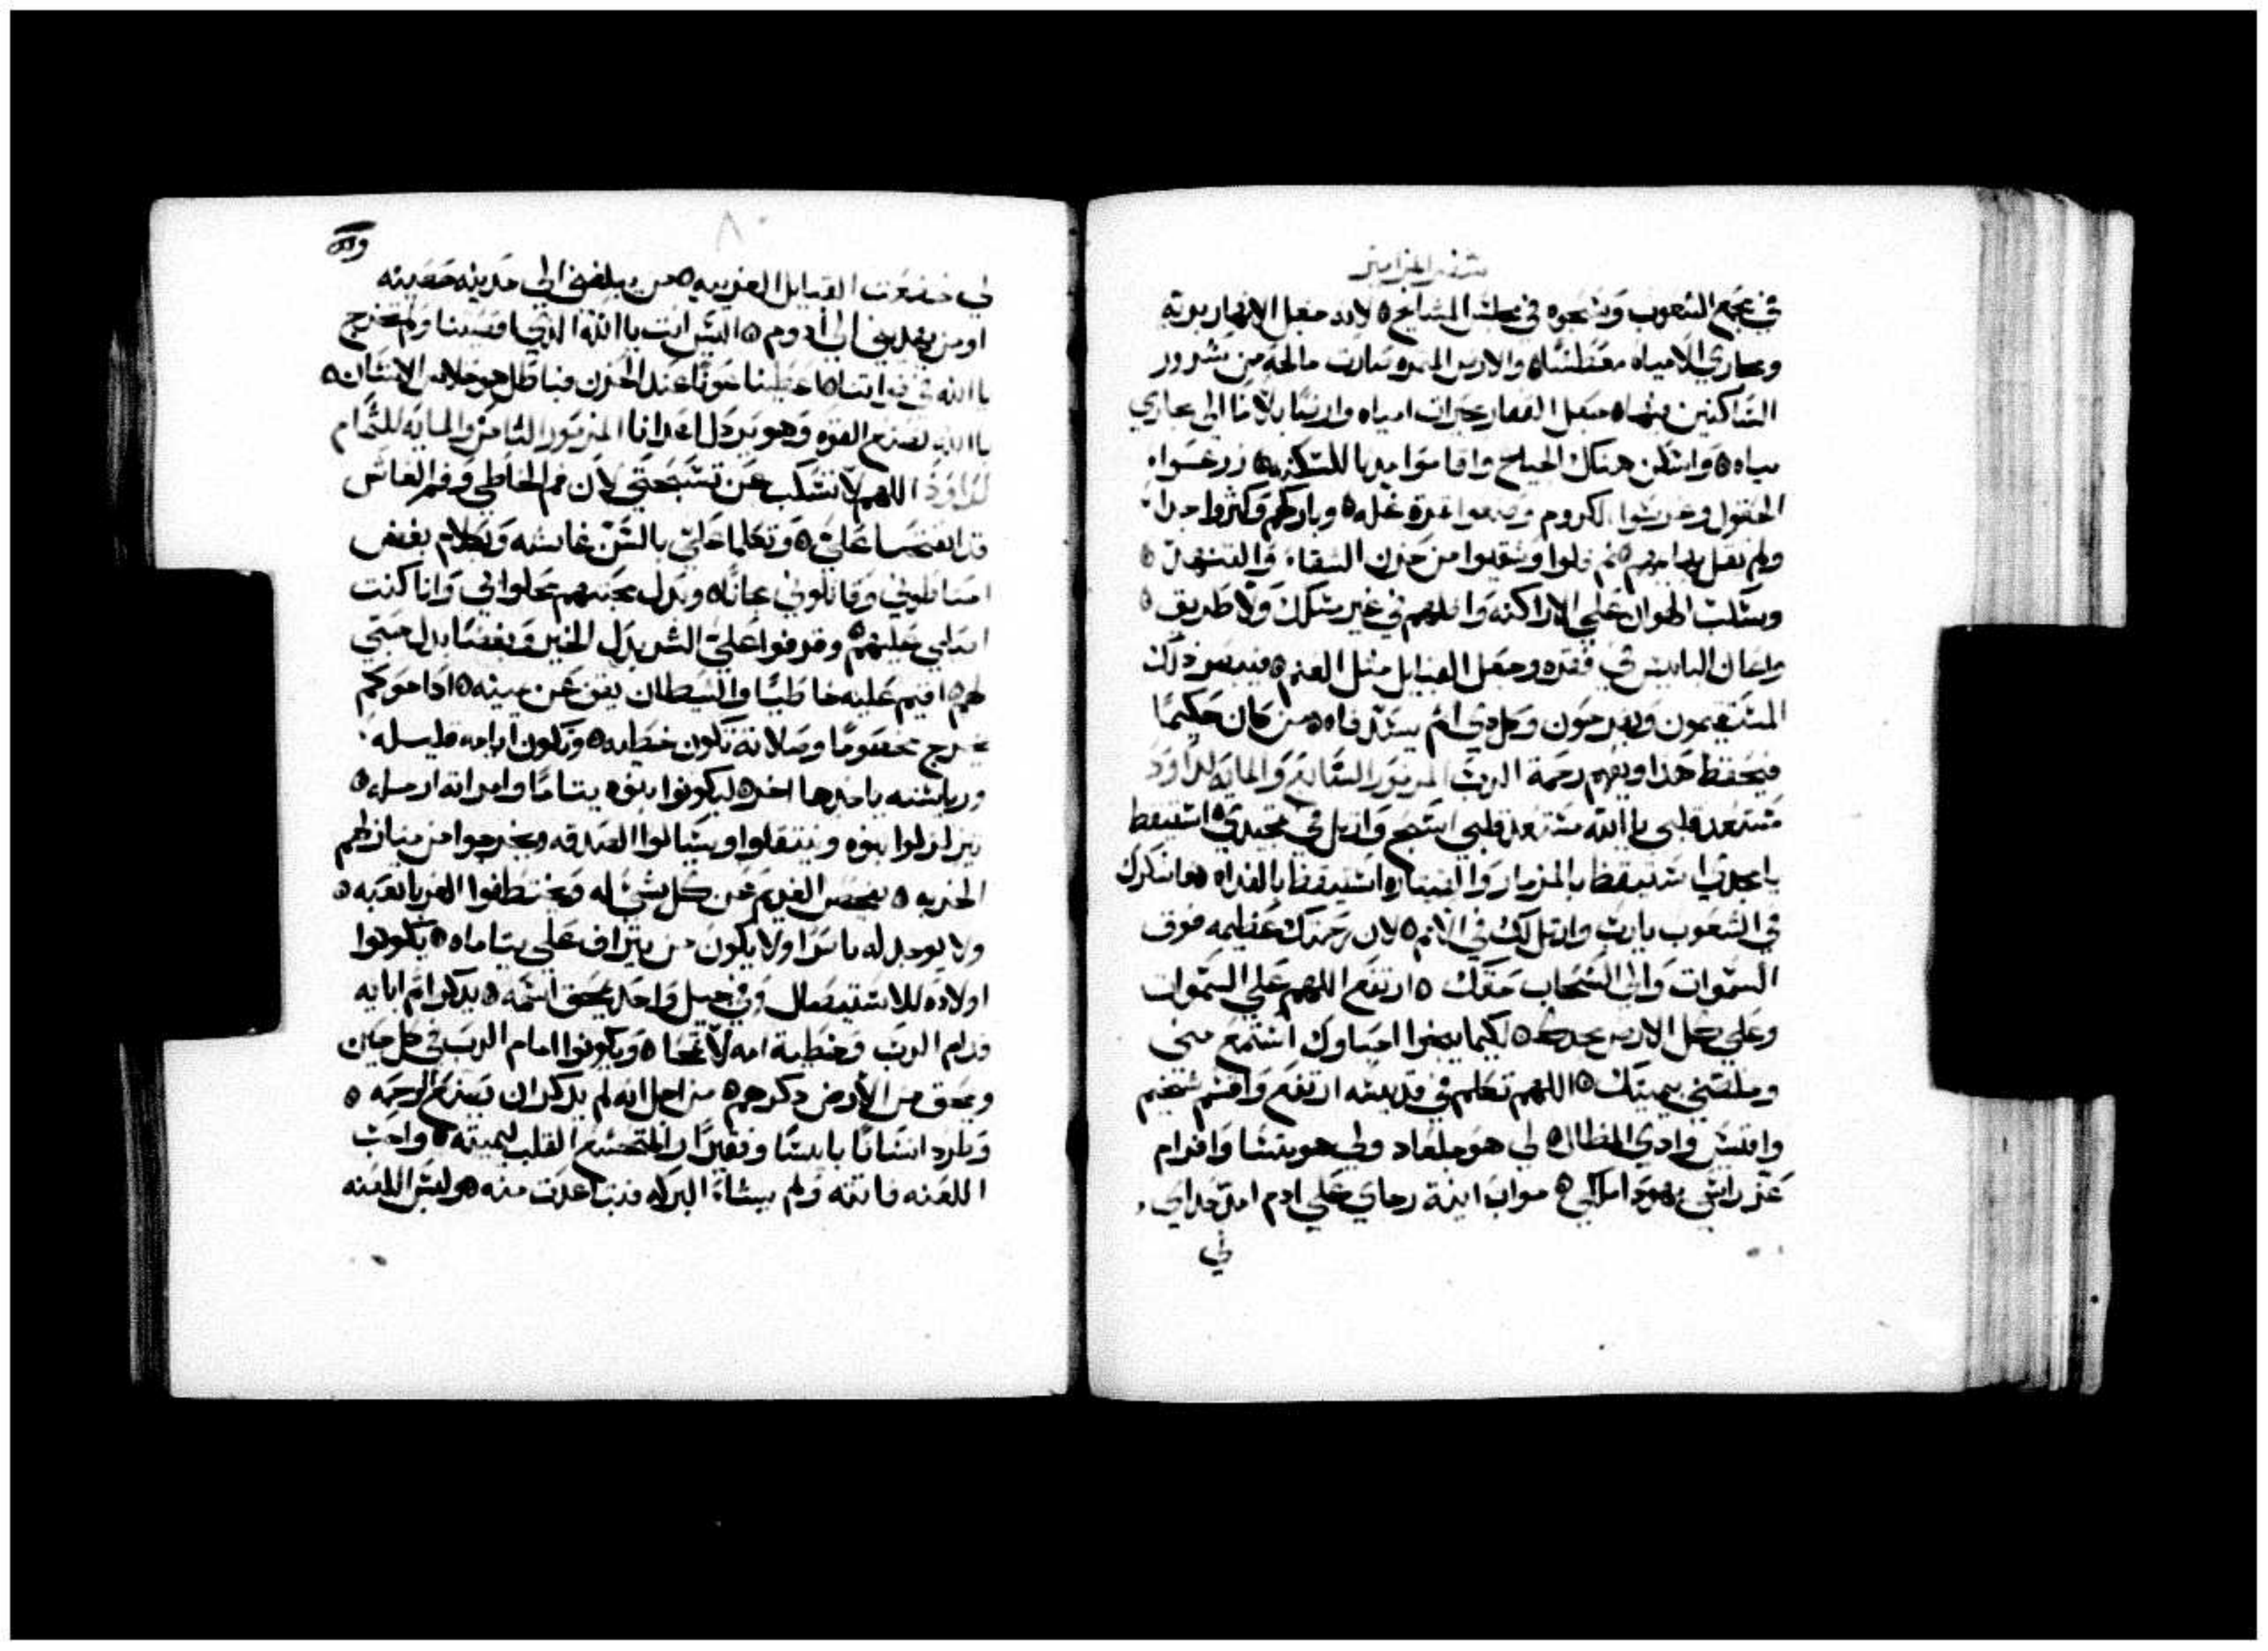 سفر المزامير
في مجمع الشعوب وسبحوه في مجلس المشايخ ٥ لانه جعل الانهار بريه
ومجاري الامياه معطشا ٥ والارض المثمره صارت مالحه من شرور
الساكنين فيها ٥ جعل القفار بحيرات امياه وارضا بلا ما الى مجاري
مياه ٥ واسكن هناك الجياع واقاموا مدنا للسكن ٥ زرعوا
الحقول وغرسوا الكروم وصنعوا ثمرة غله ٥ وباركهم وكثروا جدا
ولم يقل بهايمهم ٥ ثم قلوا وشقيوا من حزن الشقاء والتنهد ٥
وسكب الهوان على الاراكنه واضلهم في غير مسلك ولا طريق ٥
واعان البايس في فقره وجعل القبايل مثل الغنم ٥ فيبصر ذلك
المستقيمون ويفرحون وكل ذي اثم يسد فاه ٥ من كان حكيما
فيحفظ هذا ويفهم رحمة الرب المزمور السابع والمايه لداود
مستعد قلبي يا الله مستعد قلبي اسبح وارتل في تمجيدي ٥ استيقظ
يا مجدي استيقظ بالمزمار والقيتاره استيقظ بالغداه ٥ اشكرك
في الشعوب يارب وارتل لك في الامم ٥ لان رحمتك عظيمه فوق
السموات والى السحاب حقك ٥ ارتفع اللهم على السموات
وعلى كل الارض مجدك ٥ لكيما ينجوا احباوك استمع مني
وخلصني بيمينك ٥ اللهم تكلم في قديسه ارتفع واقسم شخيم
وامسح وادي المظال ٥ لي هو جلعاد ولي هو منسا وافرام
عز راسي يهودا ملكي ٥ مواب انية رجاي على ادوم امد حداي
لي
لي خضعت القبايل الغريبه ٥ من يبلغني الى مدينه حصينه
او من يهديني الى ادوم ٥ اليس انت يا الله الذي اقصيتنا ولم تخرج
يا الله في قواتنا ٥ اعطينا عونا عند الحزن فباطل هو خلاص الانسان ٥
يا الله نصنع القوه وهو يرذل اعدانا المزمور الثامن والمايه للتمام
لداود اللهم لا تسكت عن تسبحتي لان فم الخاطي وفم الغاش
قد انفتحا علي ٥ وتكلما علي بالسن غاشه وبكلام بغض
احتاطوني وقاتلوني مجانا ٥ وبدل محبتهم محلوا بي وانا كنت
اصلي عليهم ٥ وقدموا علي الشر بدل الخير وبغضا بدل حبي
لهم ٥ اقيم عليه خاطيا والشيطان يقف عن يمينه ٥ اذا حوكم
يخرج مخصوما وصلاته تكون خطيه ٥ وتكون ايامه قليله
ورياسته ياخذها اخر ٥ ليكونوا بنوه يتاما وامراته ارمله ٥
يتزلزلوا بنوه وينتقلوا ويسالوا الصدقه ويخرجوا من منازلهم
الخربه ٥ يفحص الغريم عن كل شي له ويختطفوا الغربا تعبه ٥
ولا يوجد له ناصرا ولا يكون من يتراف على يتاماه ٥ يكونوا
اولاده للاستيصال وفي جيل واحد يمحق اسمه ٥ يذكر اثم ابايه
قدام الرب وخطية امه لا تمحا ٥ ويكونوا امام الرب في كل حين
ويمحق من الارض ذكرهم ٥ من اجل انه لم يذكر ان يصنع الرحمه ٥
وطرد انسانا بايسا وفقيرا والمتخشع القلب ليميته ٥ واحب
اللعنه فاتته ولم يشاء البركه فتباعدت منه ٥ ولبس اللعنه